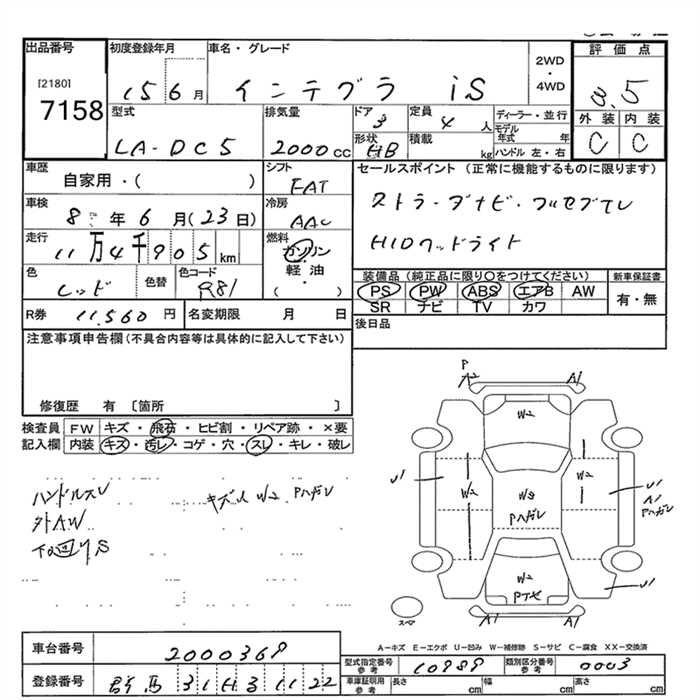 出品番号
[2180]
7158
初度登録年月
15 6月
車名・グレード
インテグラ iS
2WD
・
4WD
評価点
3.5
外装 内装
C C
型式
LA-DC5
排気量
2000CC
ドア
3
形状
HB
定員
4人
積載
kg
ディーラー・並行
モデル年式 年
ハンドル 左・右
車歴
自家用・( )
シフト
FAT
車検
8年6月(23日)
冷房
AAC
走行
11万4千905km
燃料
ガソリン
・
軽油
・
( )
色
レッド
色替
色コード
R81
R券 11,560円
名変期限 月 日
セールスポイント (正常に機能するものに限ります)
HIDヘッドライト
装備品(純正品に限り○をつけてください)
PS PW ABS エアB AW
SR ナビ TV カワ
新車保証書
有・無
後日品
注意事項申告欄(不具合内容等は具体的に記入して下さい)
修復歴 有 〔箇所 〕
検査員記入欄
FW キズ・飛石・ヒビ割・リペア跡・×要
内装 キズ・汚レ・コゲ・穴・スレ・キレ・破レ
ハンドルスレ
外AW
下回りS
W2 Pハガレ
P
W2 A1
W2
U1 W2 W3 W2 U1
Pハガレ A1
Pハガレ
W2
U1
A1 A1
スペア
A-キズ E-エクボ U-凹み W-補修跡 S-サビ C-腐食 XX-交換済
車台番号 2000369
登録番号 群馬 31 H3 11 22
型式指定番号 参考 10989
類別区分番号 参考 0003
車庫証明用 参考 長さ cm 幅 cm 高さ cm